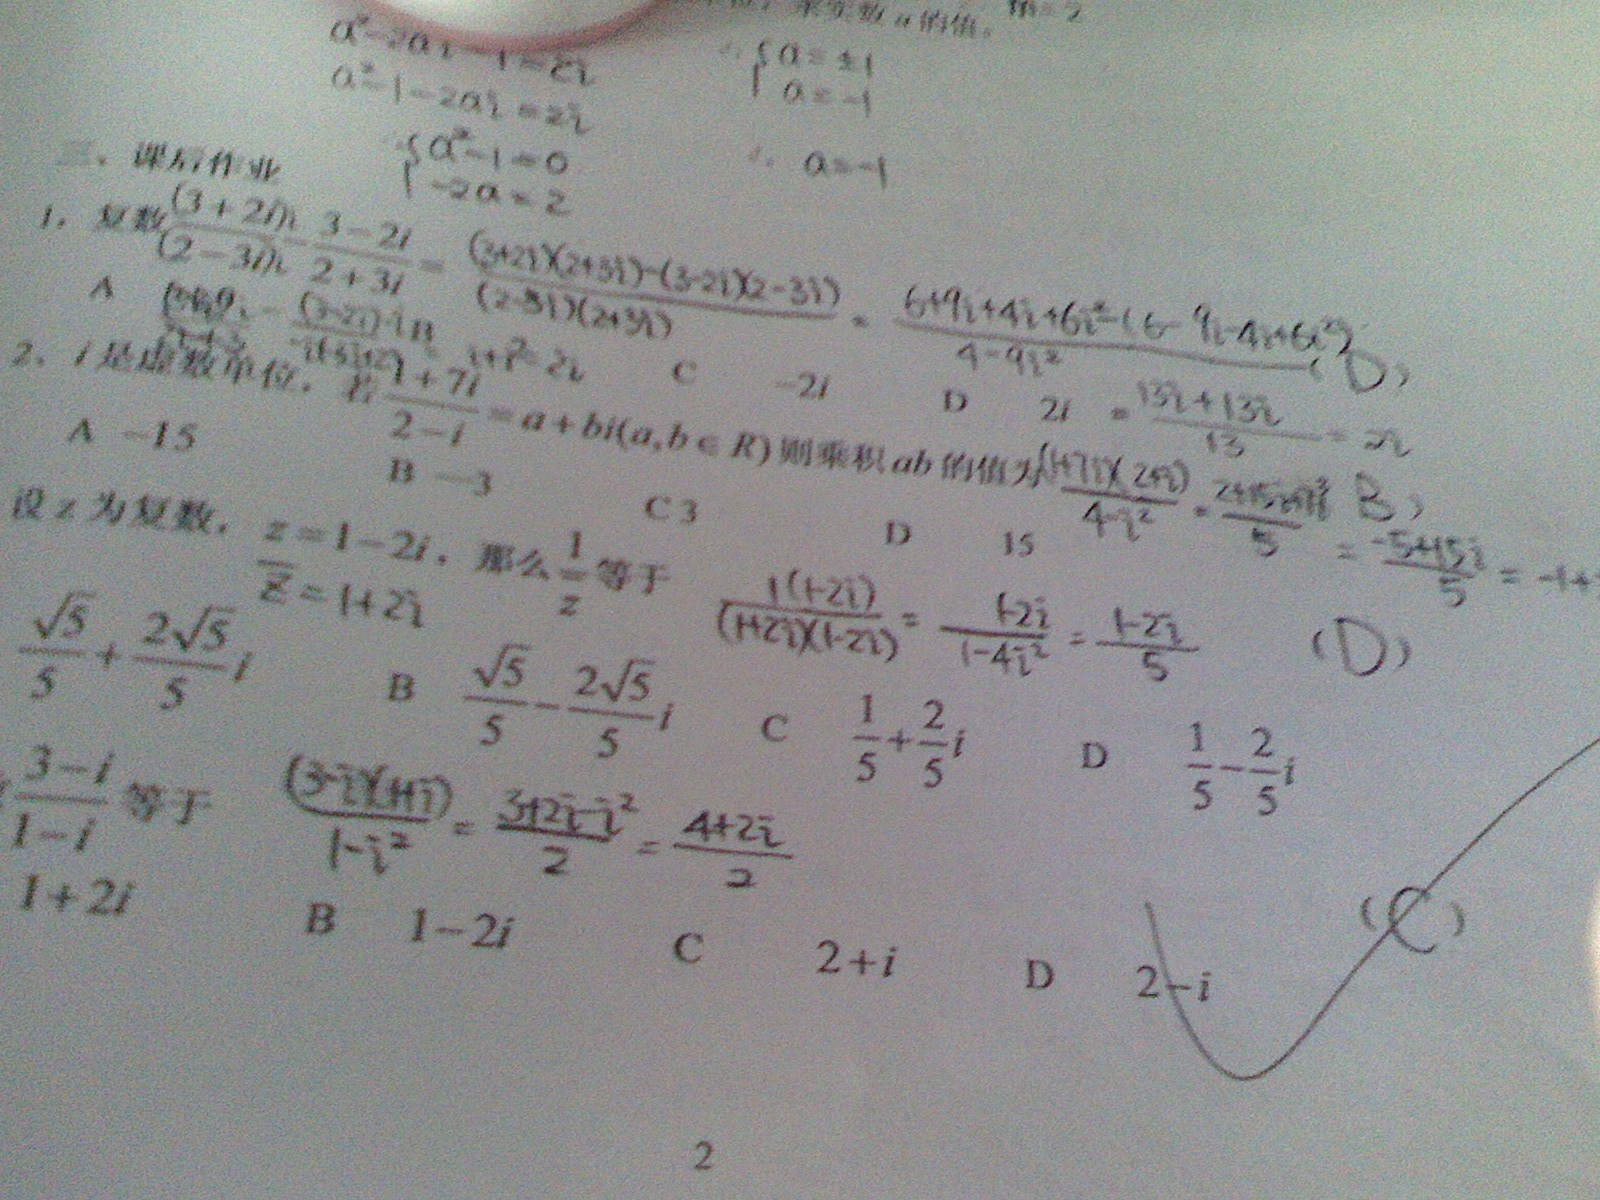 求实数a的值。 m=2
a²-2ai-1=2i {a=±1
a²-1-2ai=2i a=-1
{a²-1=0 ∴ a=-1
-2a=2
三、课后作业
1. 复数 (3+2i)i/(2-3i)i - (3-2i)/(2+3i) = ((3+2i)(2+3i)-(3-2i)(2-3i))/((2-3i)(2+3i)) = (6+9i+4i+6i²-(6-9i-4i+6i²))/(4-9i²) (D)
A B i+i²=2i C -2i D 2i = (13i+13i)/13 = 2i
2. i是虚数单位, 若 (1+7i)/(2-i) = a+bi(a,b∈R) 则乘积ab的值为 ((1+7i)(2+i))/(4-i²) = (2+15i+7i²)/5 (B)
A -15 B -3 C 3 D 15 = (-5+15i)/5 = -1+
设z为复数, z=1-2i, 那么 1/z 等于 1(1-2i)/((1+2i)(1-2i)) = (1-2i)/(1-4i²) = (1-2i)/5 (D)
z̅=1+2i
√5/5+2√5/5 i B √5/5-2√5/5 i C 1/5+2/5 i D 1/5-2/5 i
(3-i)/(1-i) 等于 ((3-i)(1+i))/(1-i²) = (3+2i-i²)/2 = (4+2i)/2 (C)
1+2i B 1-2i C 2+i D 2-i
2